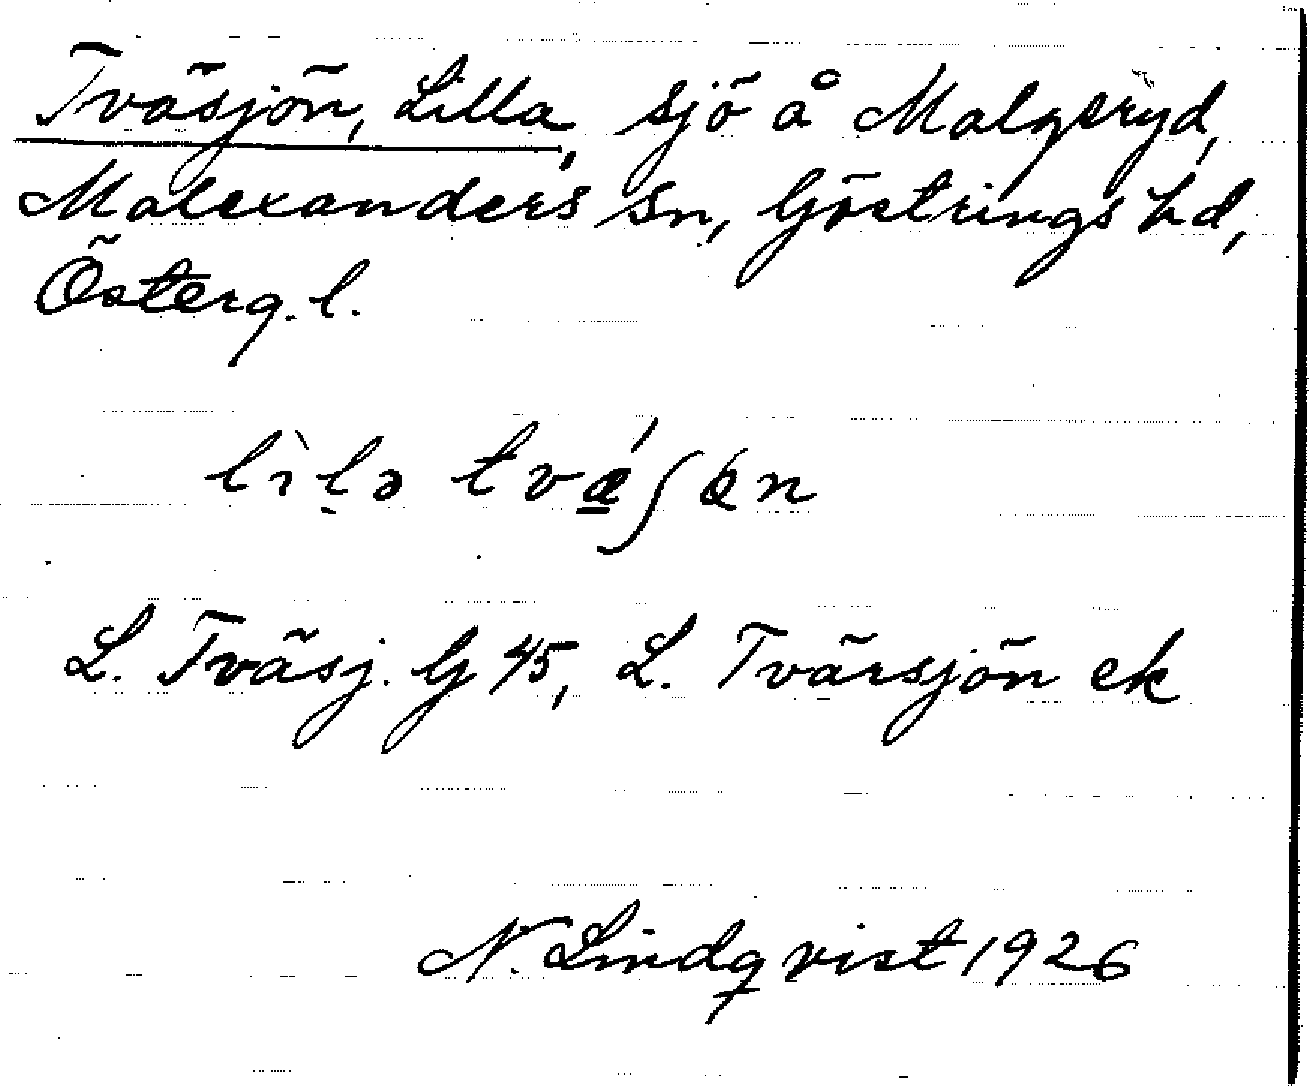 Tväsjön, Lilla, sjö å Malgseryd,
Malexanders sn, Göstrings hd,
Österg. l.
lìlə tvǽʃøn
L. Tväsj. G 45, L. Tvärsjön ek
N. Lindqvist 1926